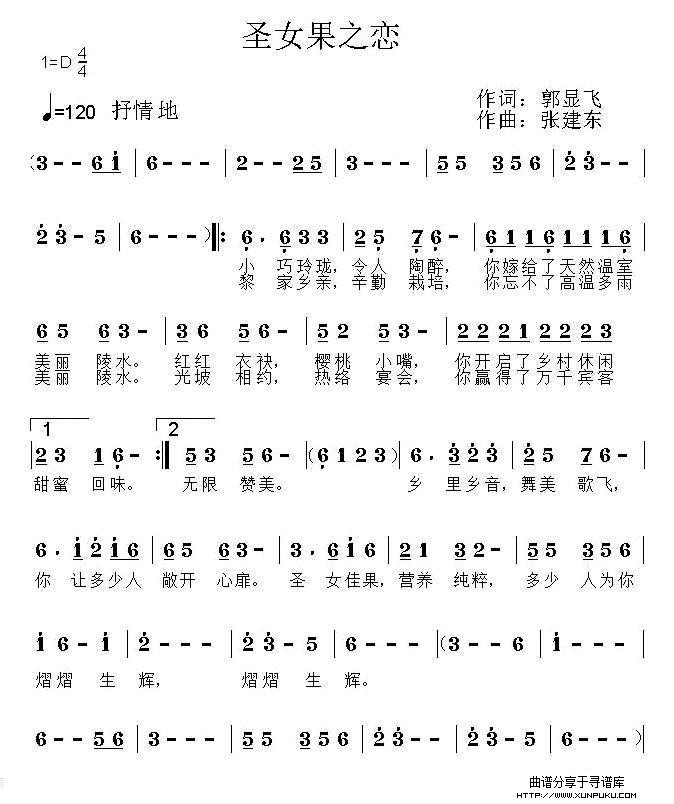 圣女果之恋
1=D 4/4
♩=120 抒情地
作词：郭显飞
作曲：张建东
(3 - - 6 i | 6 - - - | 2 - - 2 5 | 3 - - - | 5 5 3 5 6 | 2 3 - - |
2 3 - 5 | 6 - - - ) |: 6 . 6 3 3 | 2 5 7 6 - | 6 1 1 6 1 1 1 6 |
小 巧玲珑，令人 陶醉， 你嫁给了天然温室
黎 家乡亲，辛勤 栽培， 你忘不了高温多雨
6 5 6 3 - | 3 6 5 6 - | 5 2 5 3 - | 2 2 2 1 2 2 2 3 |
美丽 陵水。 红红 衣袂， 樱桃 小嘴， 你开启了乡村休闲
美丽 陵水。 光坡 相约， 热络 宴会， 你赢得了万千宾客
1 2
2 3 1 6 - :| 5 3 5 6 - | (6 1 2 3) | 6 . 3 2 3 | 2 5 7 6 - |
甜蜜 回味。 无限 赞美。 乡 里乡音，舞美 歌飞，
6 . i 2 i 6 | 6 5 6 3 - | 3 . 6 i 6 | 2 1 3 2 - | 2 3 3 5 6 |
你 让多少人 敞开 心扉。 圣 女佳果，营养 纯粹， 多少 人为你
i 6 - i | 2 - - - | 2 3 - 5 | 6 - - - | (3 - - 6 | i - - - |
熠熠 生 辉， 熠熠 生 辉。
6 - - 5 6 | 3 - - - | 5 5 3 5 6 | 2 3 - - | 2 3 - 5 | 6 - - - )
曲谱分享于寻谱库
HTTP://WWW.XUNPUKU.COM